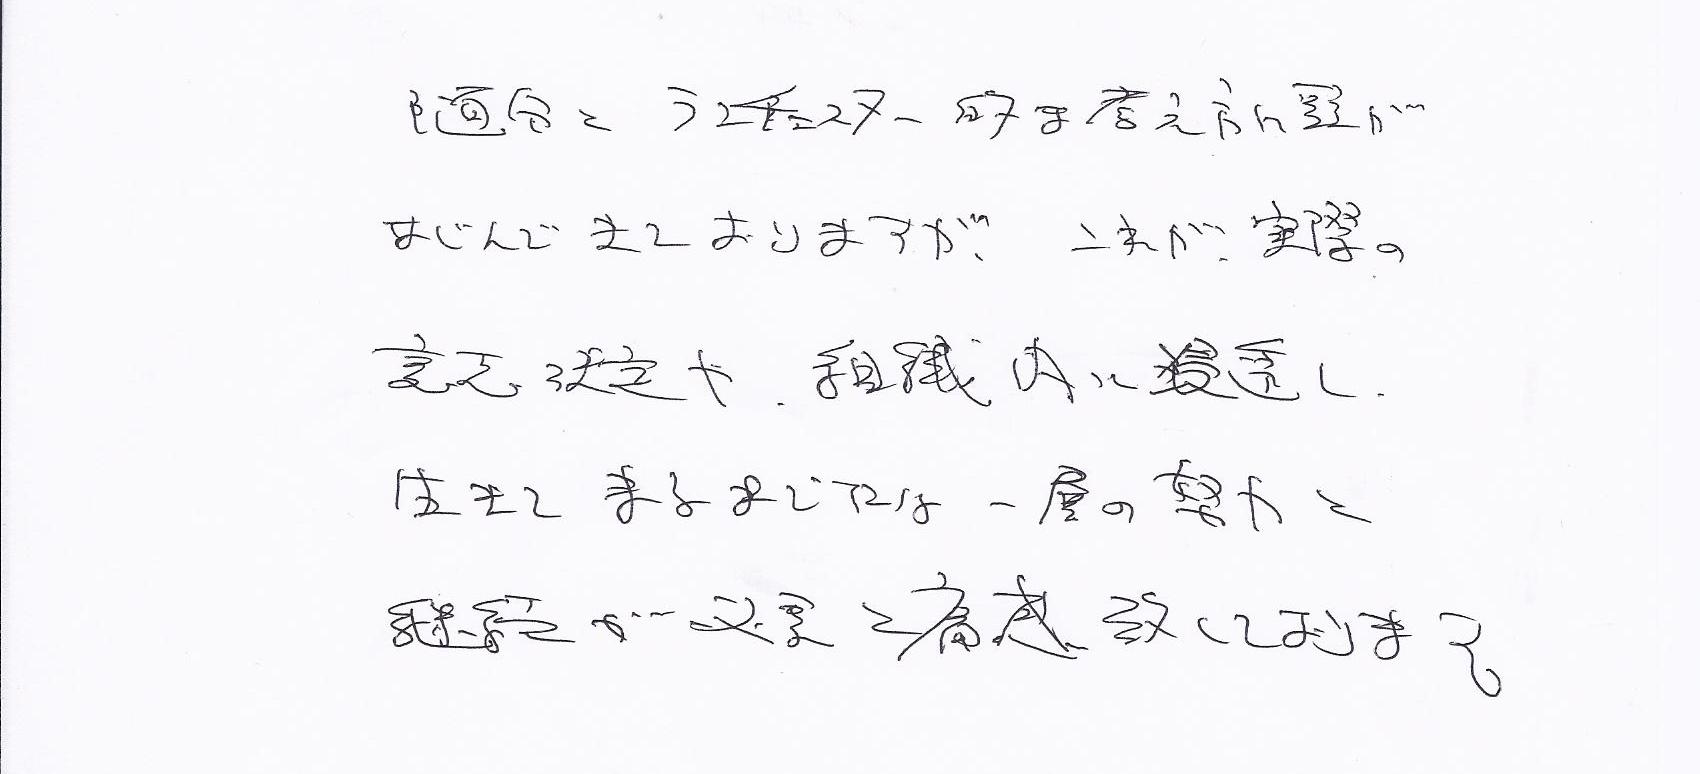 随分とランチェスター的な考え方に頭が
なじんできておりますが、これが、実際の
意思決定や、組織内に浸透し、
生きてきるまでには一層の努力と
継続が必要と痛感致しております